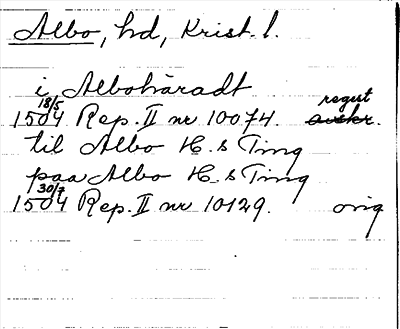 Albo, hd, Krist. l.
i Alboháradt
18/5 regest
1504 Rep. II nr 10074. avskr.
til Albo H. s Ting
paa Albo H. s Ting
30/7
1504 Rep. II nr 10129. orig